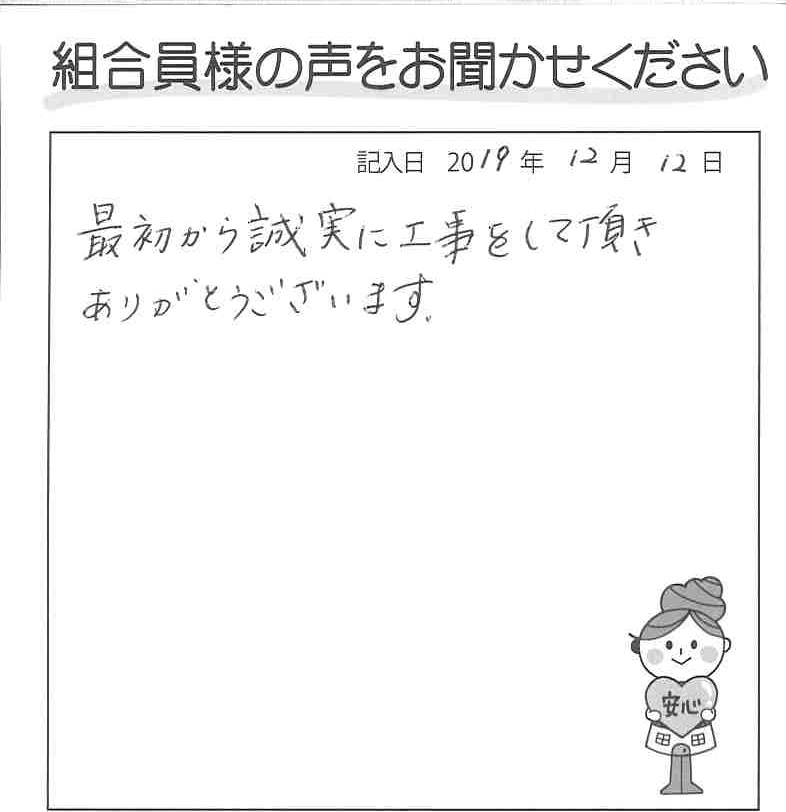 組合員様の声をお聞かせください
記入日 2019年 12月 12日
最初から誠実に工事をして頂き
ありがとうございます。
安心